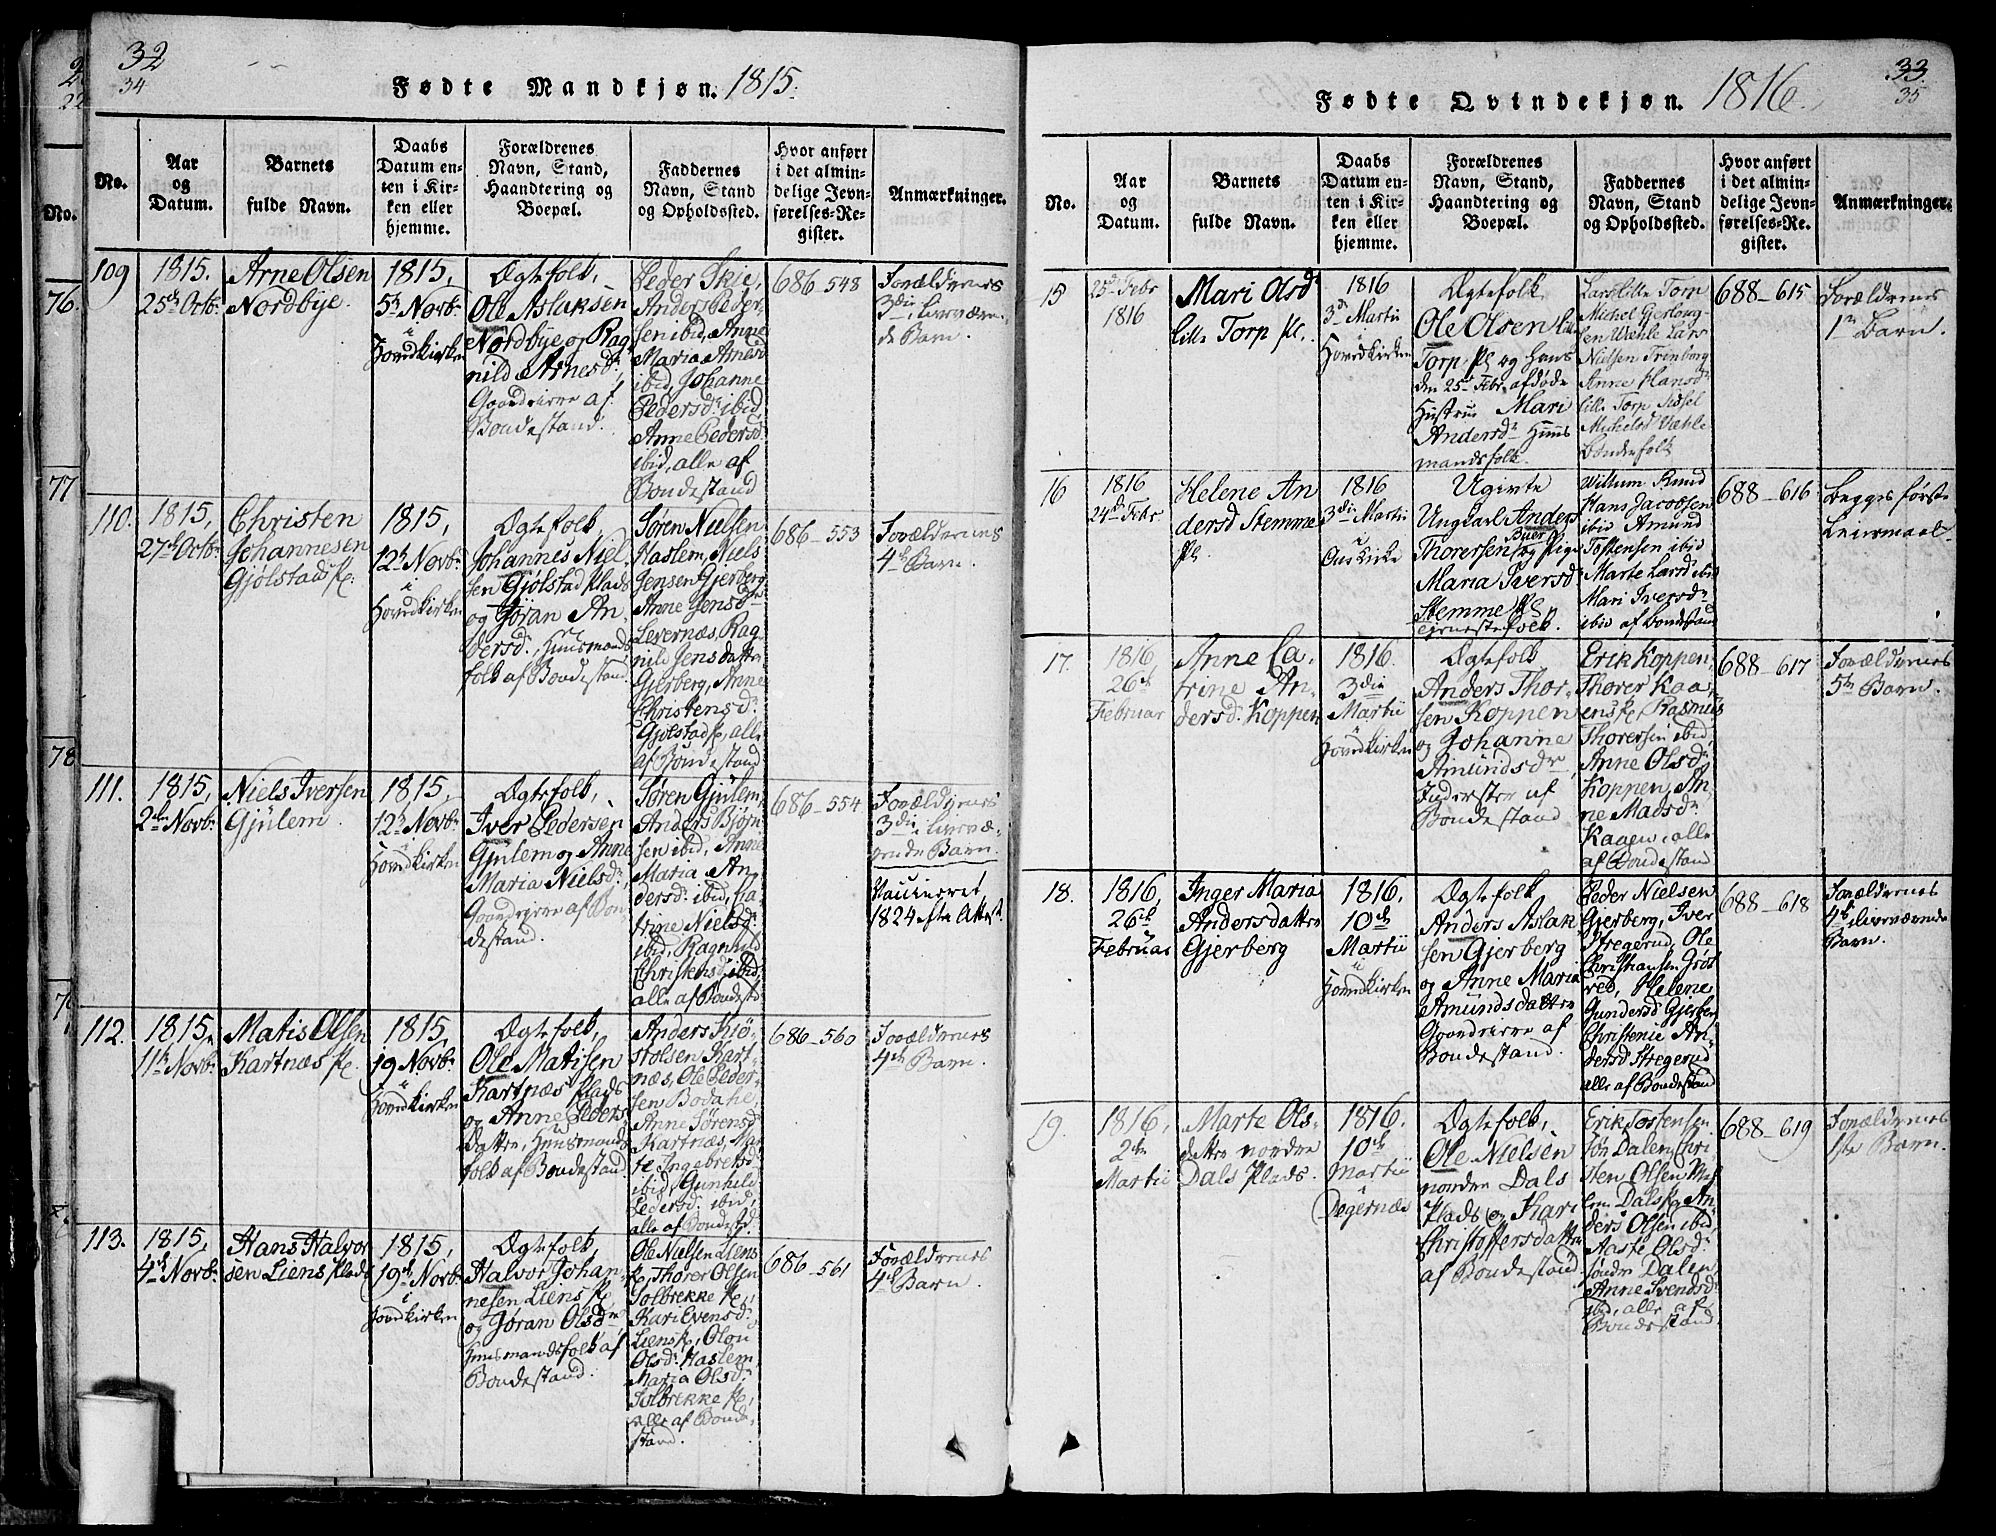 32
34
Fødte Mandkjøn. 1815.
No.
Aar
og
Datum.
Barnets
fulde Navn.
Daabs
Datum en-
ten i Kir-
ken eller
hjemme.
Forældrenes
Navn, Stand,
Haandtering og
Boepæl.
Faddernes
Navn, Stand
og Opholdssted.
Hvor anført
i det almin-
delige Jevn-
førelses-Re-
gister.
Anmærkninger.
109
1815.
25de Octbr.
Arne Olsen
Nordbye.
1815,
5te Novbr.
i
Hovedkirken
Ægtefolk,
Ole Aslaksen
Nordbye og Rag
nild Arnesdr.
Gaardeiere af
Bondestand.
Peder Skie,
Anders Peder-
sen ibid, Anne
Maria Arnesd
ibid, Johanne
Pedersdr. ibid,
Anne Pedersd.
ibid, alle af
Bondestand
686-548
Forældrenes
3die liveværen-
de Barn.
110.
1815,
27de Octbr.
Christen
Johannesen
Gjølstad Pl.
1815,
12te Novbr.
i
Hovedkirken
Ægtefolk,
Johannes Niel-
sen Gjølstad Plads
og Jöran An-
dersd., Huusmands
folk af Bondestand.
Søren Nielsen
Haslem, Niels
Jensen Gjerberg,
Anne Jensdtr
Levernæs, Rag-
nild Jensdatter
Gjerberg, Anne
Christensdr.
Gjølstad Pl, alle
af Bondestand
686-553
Forældrenes
4de Barn.
111.
1815,
2den Novbr.
Niels Iversen
Gjülem
1815,
12te Novbr.
i
Hovedkirken
Ægtefolk,
Iver Pedersen
Gjulem og Anne
Maria Nielsdr.,
Gaardeiere af Bon
destand.
Søren Gjülem,
Anders Bjørn-
sen ibid, Anne
Maria An-
dersdr. ibid, Ca-
trine Nielsdr.
ibid, Ragnhild
Christensd. ibid,
alle af Bondestd.
686-554
Forældrenes
3die livevæ-
rende Barn.
Vaccineret
1824 efter Attest.
112.
1815,
11te Novbr.
Matis Olsen
Kartnæs Pl.
1815,
19 Novbr.
i
Hovedkirken
Ægtefolk,
Ole Matisen
Kartnæs Plads
og Anne Peders
Datter, Huusmands
folk af Bondestand.
Anders Kiø-
stolsen Kart-
næs, Ole Peder-
sen Bodahl,
Anne Sørensd
Kartnæs, Mar
te Ingebretsd.
ibid, Gunhild
Pedersd. ibid,
alle af Bondestd.
686-560
Forældrenes
4de Barn.
113.
1815,
4de Novbr.
Hans Halvor
sen Liens Plads
1815,
19de Novbr.
i
Hovedkirken
Ægtefolk,
Halvor Johan-
nesen Liens Pl.
og Jøran Olsdr.,
Huusmandsfolk af
Bondestand.
Ole Nielsen Liens
Pl, Thorer Olsen
Solbrekke Pl,
Kari Evensd.
Liens Pl, Olou
Olsdr. Haslem,
Maria Olsdr.
Solbrekke Pl,
alle af Bonde-
stand.
686-561
Forældrenes
4de Barn.
33.
35
Fødte Qvindekjøn. 1816.
No.
Aar
og
Datum.
Barnets
fulde Navn.
Daabs
Datum en-
ten i Kir-
ken eller
hjemme.
Forældrenes
Navn, Stand,
Haandtering og
Boepæl.
Faddernes
Navn, Stand
og Opholdssted.
Hvor anført
i det almin-
delige Jevn-
førelses-Re-
gister.
Anmærkninger.
15
25de Febr
1816
Mari Olsdr
lille Torp Pl.
1816
3die Martii
i
Hovedkirken
Ægtefolk
Ole Olsen lille
Torp Pl og Hans
den 25de Febr. afdøde
Hustrue Mari
Andersdr Huus
mandsfolk.
Lars lille Torp
Michel
sen Wehle Lars
Nielsen Trinborg
Anne Hansdr.
lille Torp Sidsel
Michelsd Væhle
Bondefolk
688-615
Forældrenes
1te Barn.
16
1816
24de Febr
Helene An
dersd Stemme
Pl.
1816
3die Martii
i
Ous Kirke
Ugivte
Ungkarl Anders
Thorersen Buer og Pige
Maria Iversd
Stemme Pl
tienestefolk.
Willum Knud
Hans Jacobsen
ibid Amund
Tostensen ibid
Marte Larsd ibid
Mari Iversdr
ibid af Bondestand
688-616
Begges første
Leiermaal.
17.
1816,
26de
Februar
Anne Ca-
trine An-
dersd. Koppen
1816.
3die
Martii
i
Hovedkirken
Ægtefolk
Anders Thor-
sen Koppen
og Johanne
Amundsdr,
Inderster af
Bondestand
Erik Koppen,
Thorer Kaa-
ens Pl, Rasmus
Thorersen ibid,
Anne Olsdr.
Koppen, An-
ne Madsdr.
Kaagen, alle
af Bondestand
688-617
Forældrenes
5te Barn.
18.
1816,
26de
Februar
Inger Maria
Andersdatter
Gjerberg
1816.
10de
Martii
i
Hovedkirken
Ægtefolk
Anders Aslak
sen Gjerberg
og Anne Maria
Amundsdatter
Gaardeiere af
Bondestand.
Peder Nielsen
Gjerberg, Iver
Stregerud, Ole
Christiansen Grøt
ved, Helene
Gundersd Gjerber
Christenie An-
dersd Stregerud
alle af Bondestand
688-618
Forældrenes
4de liveværende
Barn.
19.
1816,
2den
Martii
Marte Ols-
datter nordre
Dals Plads.
1816.
10de
Martii
i
Degernæs
Ægtefolk,
Ole Nielsen
nordre Dals
Plads og Kari
Christoffersdatter
af Bondestand.
Erik Tostensen
søn Dalen, Chri
sten Olsen
Dals Pl An-
ders Olsen ibid,
Aaste Olsdr.
søndre Dalen
Anne Svendsdr.
ibid, alle af
Bondestand
688-619
Forældrenes
1ste Barn.
No.
76.
77
78